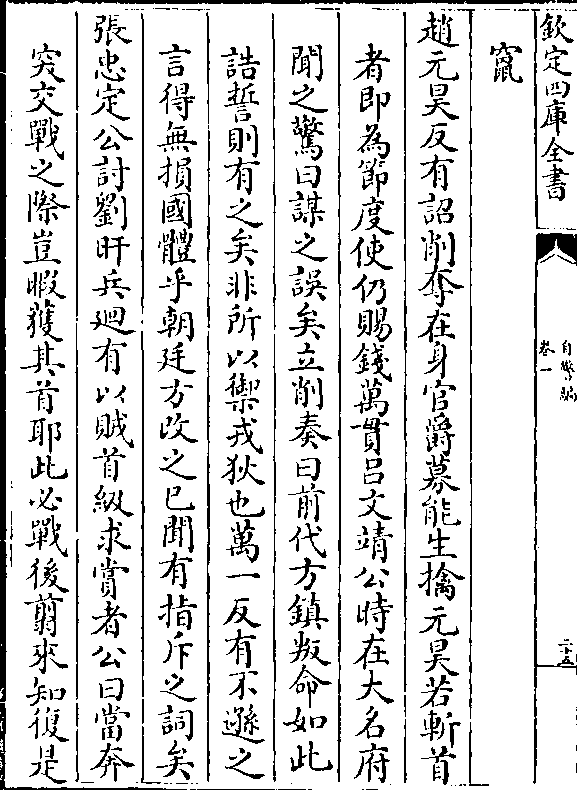 欽定四庫全書
自警編
卷一
二十五
竄
趙元昊反有詔削奪在身官爵募能生擒元昊若斬首
者即為節度使仍賜錢萬貫吕文靖公時在大名府
聞之驚曰謀之誤矣立削奏曰前代方鎮叛命如此
誥誓則有之矣非所以禦戎狄也萬一反有不遜之
言得無損國體乎朝廷方改之已聞有指斥之詞矣
張忠定公討劉旰兵廻有以賊首級求賞者公曰當奔
突交戰之際豈暇獲其首耶此必戰後翦來知復是